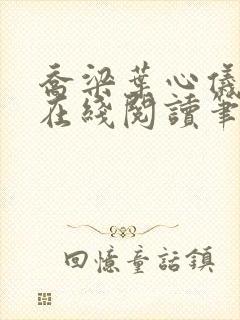 喬梁葉心儀
在綫閱讀筆
回憶童話鎮